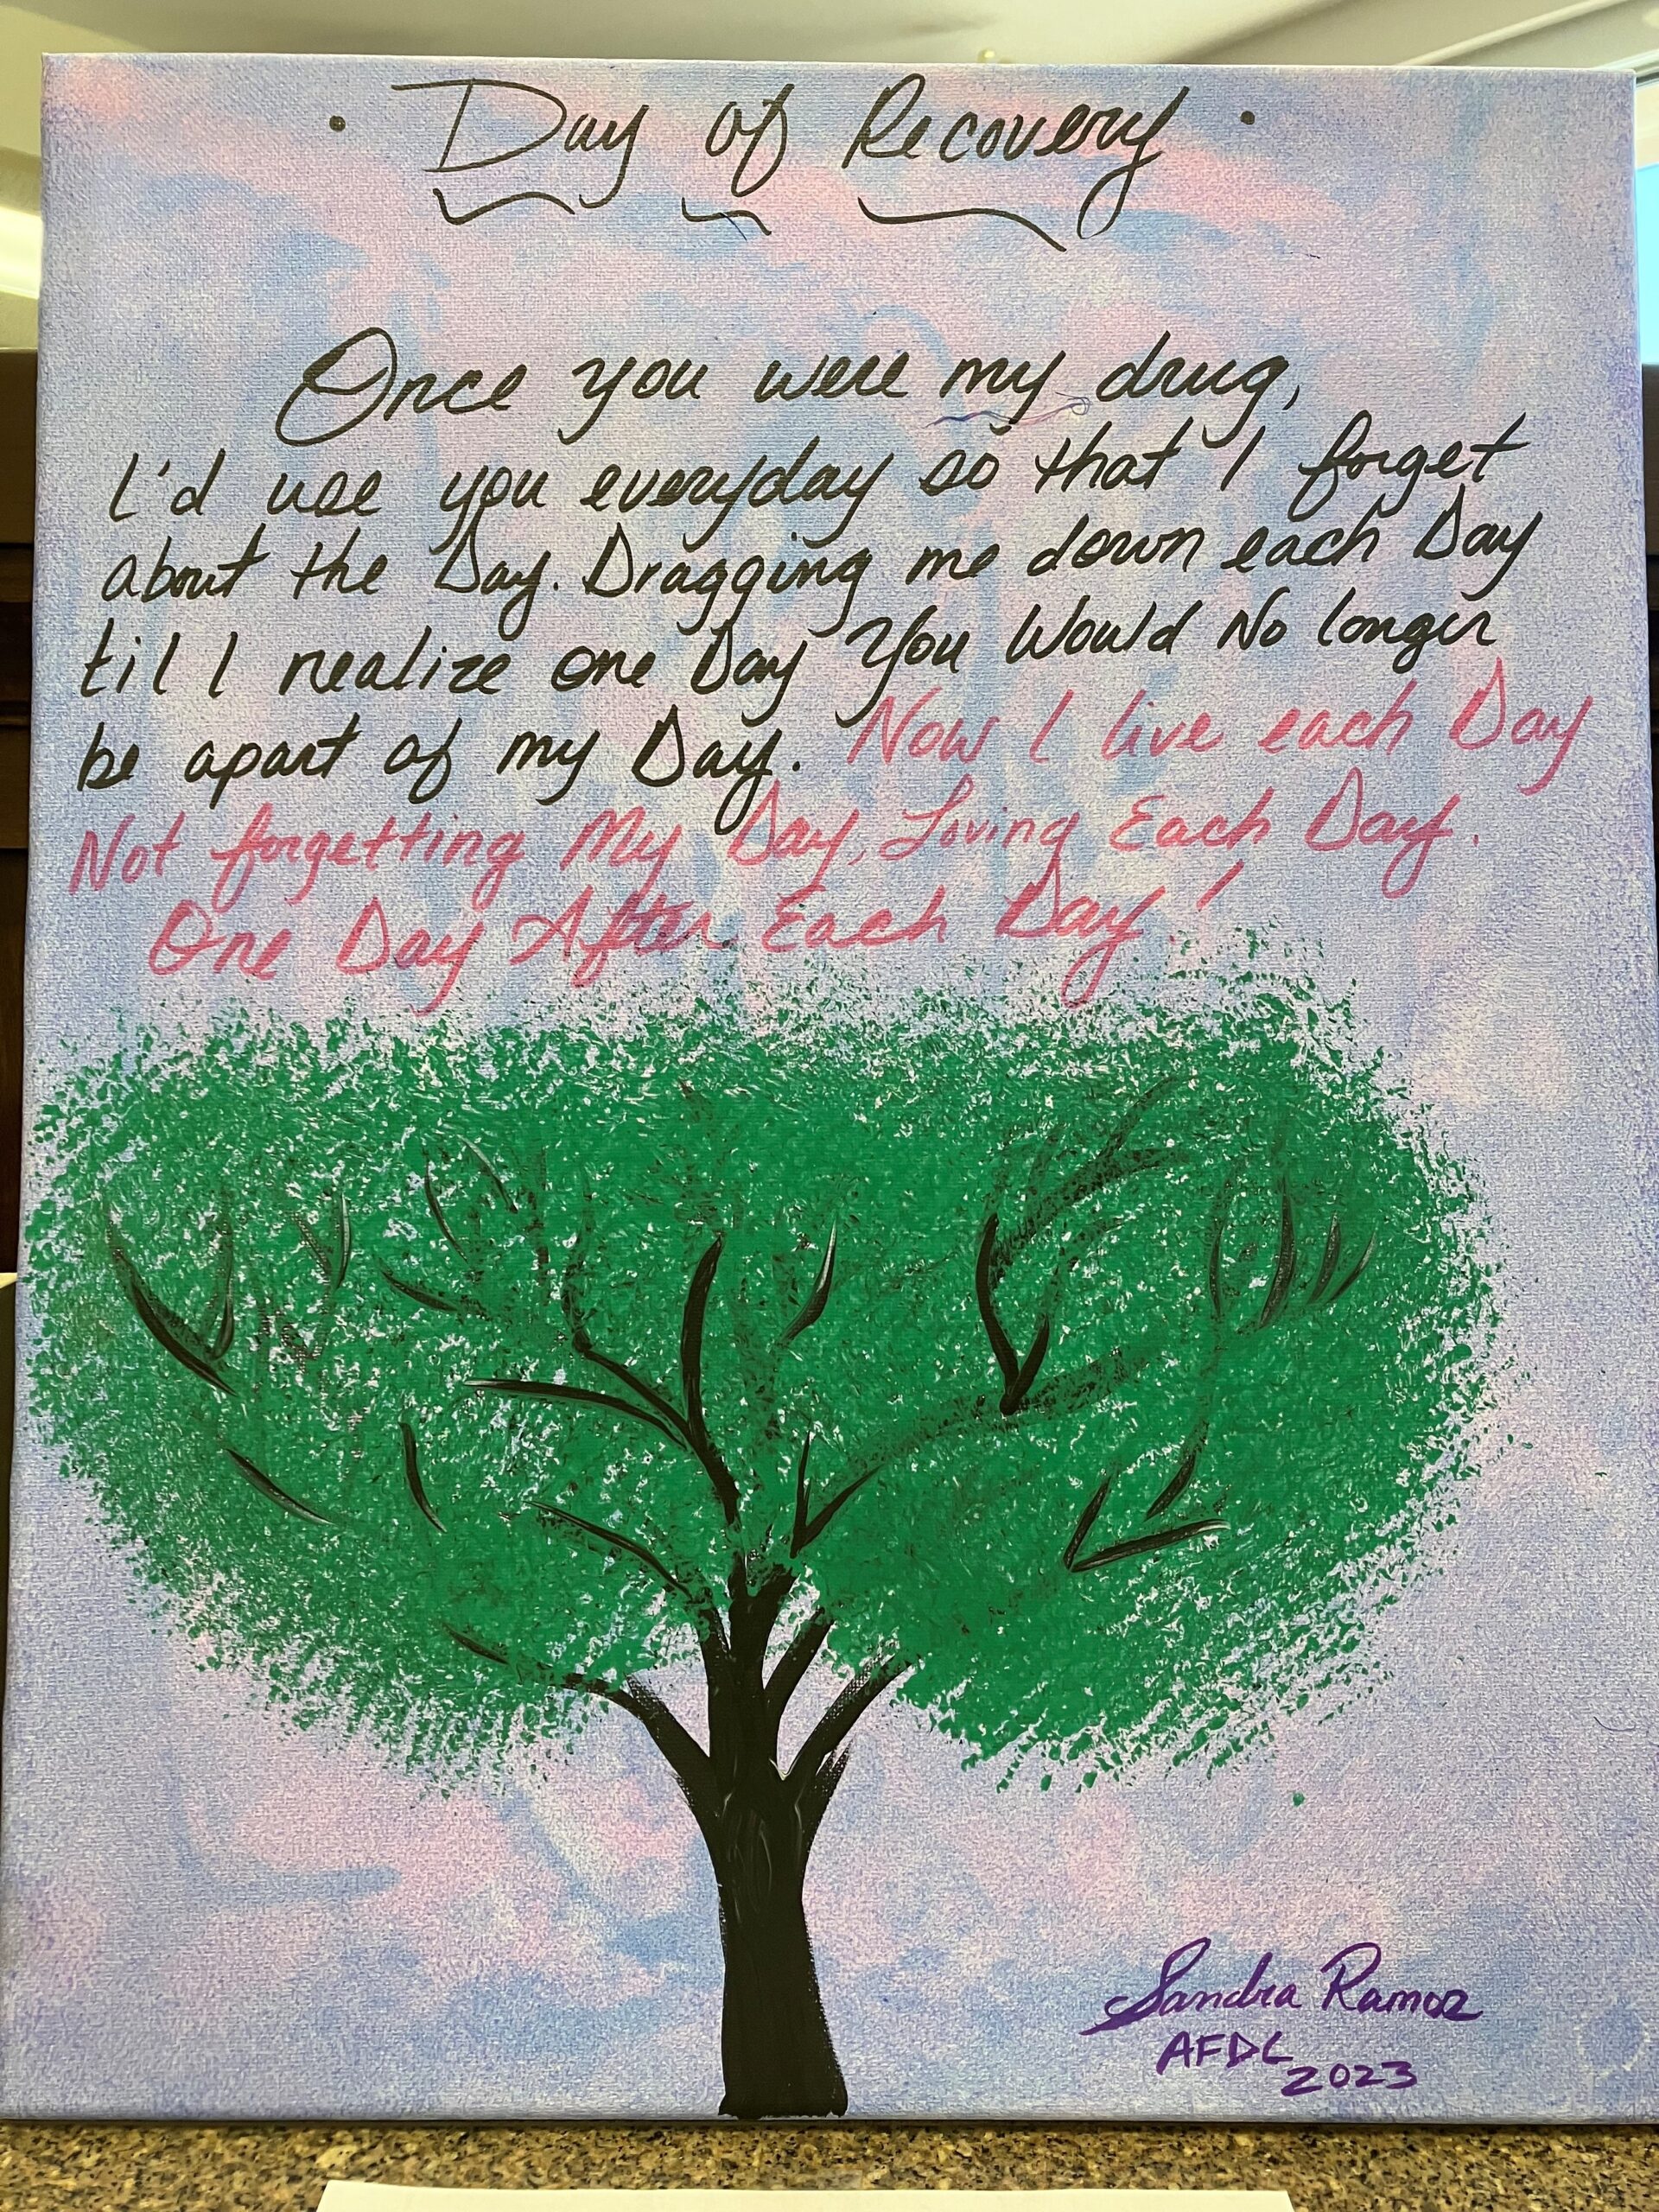 · Day of Recovery ·
Once you were my drug,
I'd use you everyday so that I forget
about the Day. Dragging me down each Day
til I realize one Day You Would No longer
be apart of my Day. Now I live each Day
Not forgetting My Day, Loving Each Day.
One Day After Each Day!
Sandra Ramoz
AFDC
2023